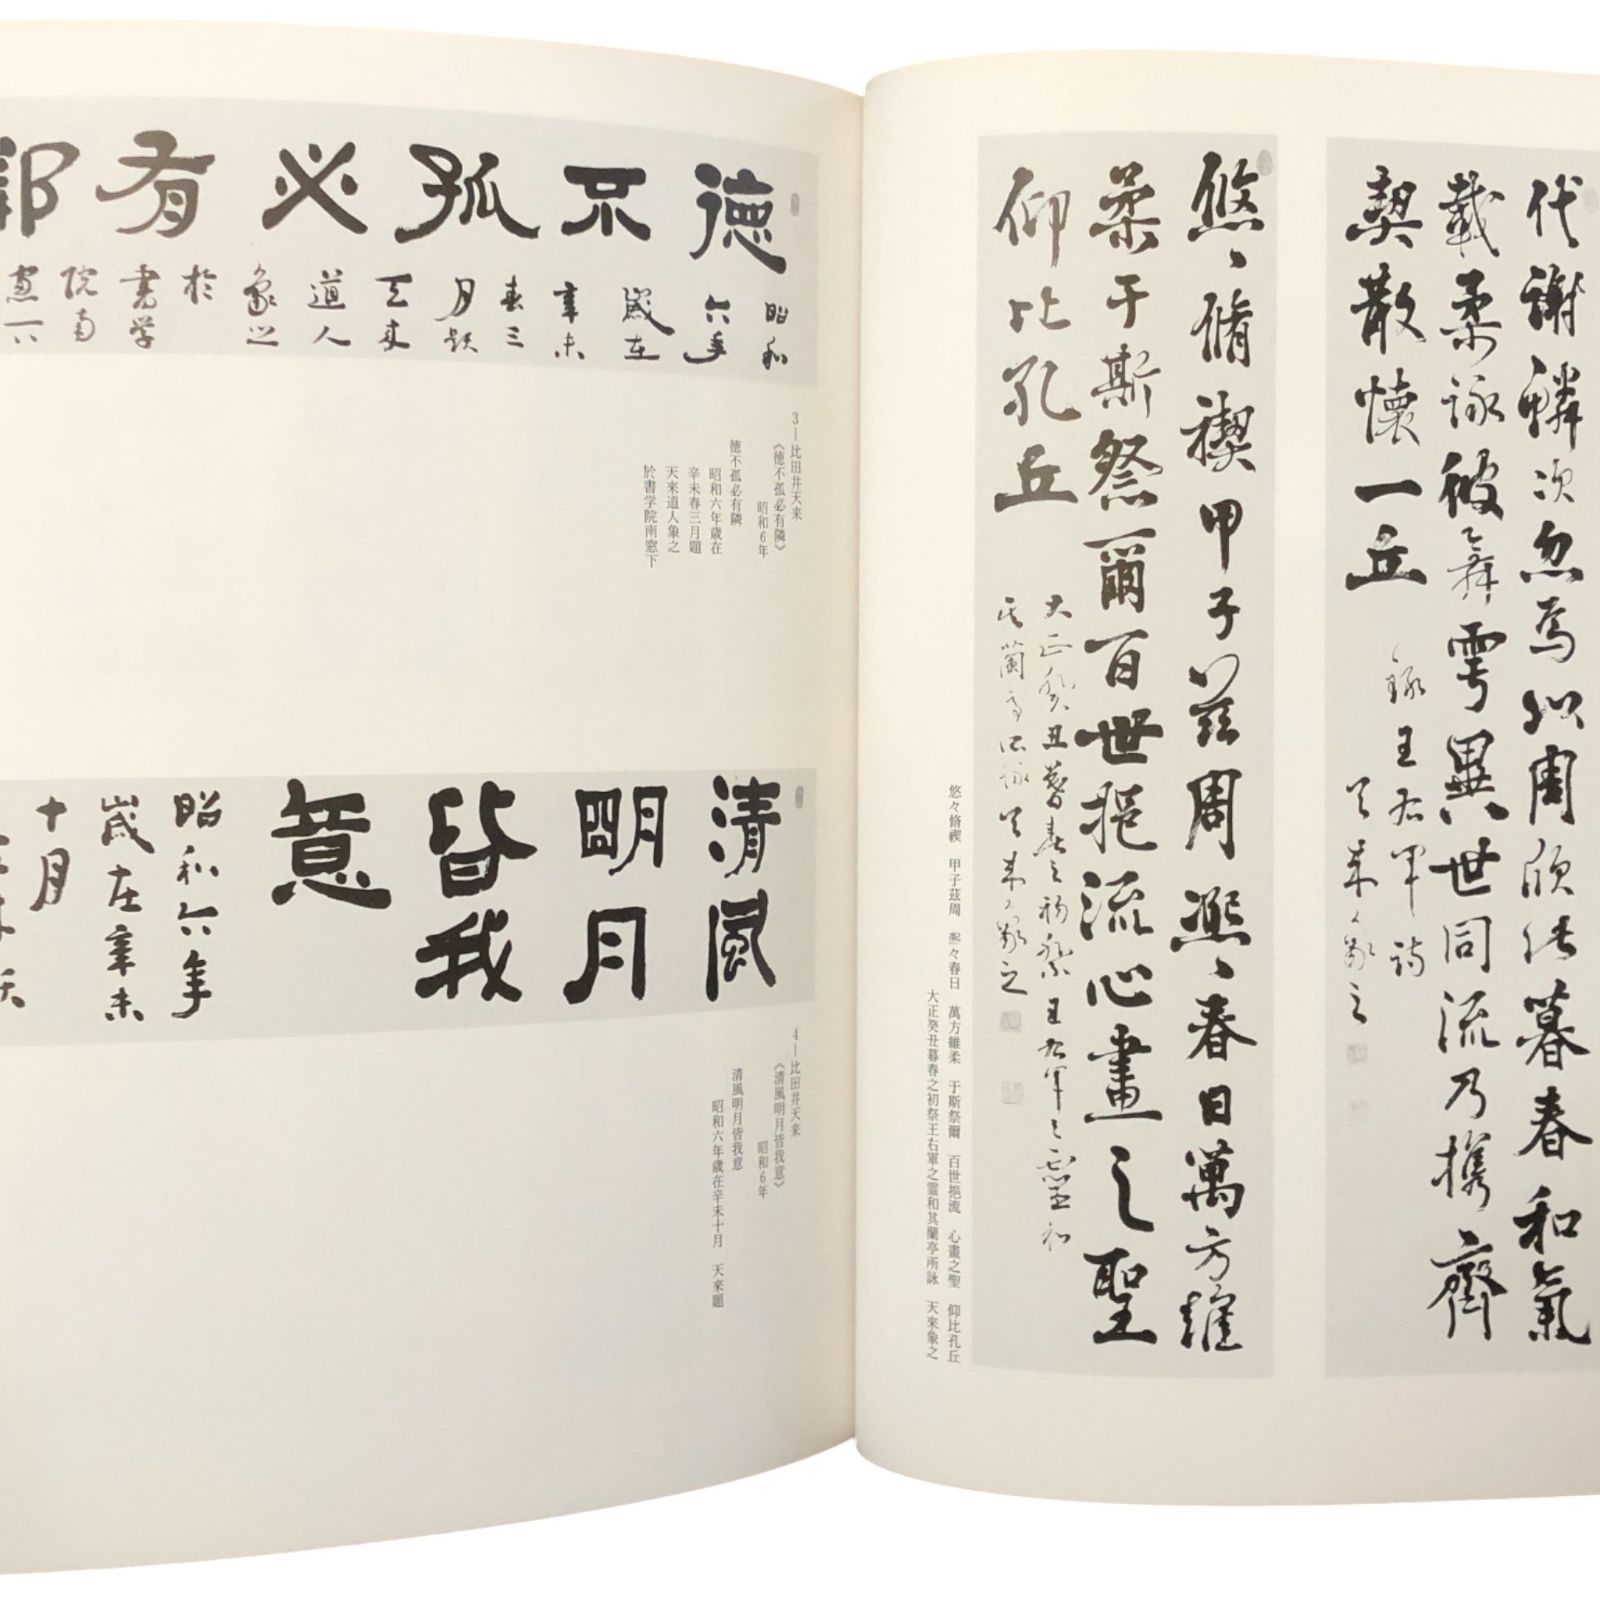 代謝鱗次忽焉以周欣此暮春和氣
載柔詠彼舞雩異世同流乃攜齊
契散懷一丘
録王右軍詩
天来象之
悠〻脩禊甲子茲周熙〻春日萬方維
柔于斯祭爾百世挹流心畫之聖
仰比孔丘
大正癸丑暮春之初祭王右軍之霊和
其蘭亭所詠天来象之
悠々脩禊　甲子茲周　熙々春日　萬方維柔　于斯祭爾　百世挹流　心畫之聖　仰比孔丘
大正癸丑暮春之初祭王右軍之霊和其蘭亭所詠　天来象之
德不孤必有鄰
昭和
六年
歳在
辛未
春三
月題
天来
道人
象之
於
書学
院南
窓下
3―比田井天来
《徳不孤必有隣》
昭和6年
徳不孤必有隣
昭和六年歳在
辛未春三月題
天來道人象之
於書学院南窓下
清風
明月
皆我
意
昭和六年
歳在辛未
十月
4―比田井天来
《清風明月皆我意》
昭和6年
清風明月皆我意
昭和六年歳在辛未十月　天來題